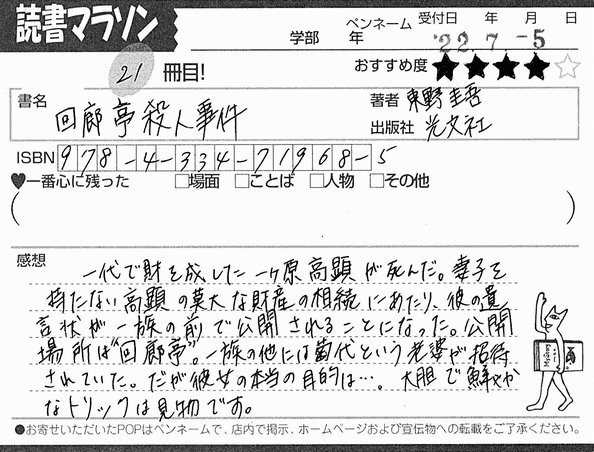 読書マラソン
学部 年
ペンネーム
受付日 年 月 日
'22.7.-5
21 冊目!
おすすめ度 ★★★★☆
書名 回廊亭殺人事件
著者 東野圭吾
出版社 光文社
ISBN 978-4-334-71968-5
♥一番心に残った □場面 □ことば □人物 □その他
( )
感想
一代で財を成した一ヶ原高顕が死んだ。妻子を
持たない高顕の莫大な財産の相続にあたり、彼の遺
言状が一族の前で公開されることになった。公開
場所は"回廊亭"。一族の他には菊代という老婆が招待
されていた。だが彼女の本当の目的は…。大胆で鮮やか
なトリックは見物です。
●お寄せいただいたPOPはペンネームで、店内で掲示、ホームページおよび宣伝物への転載をご了承ください。